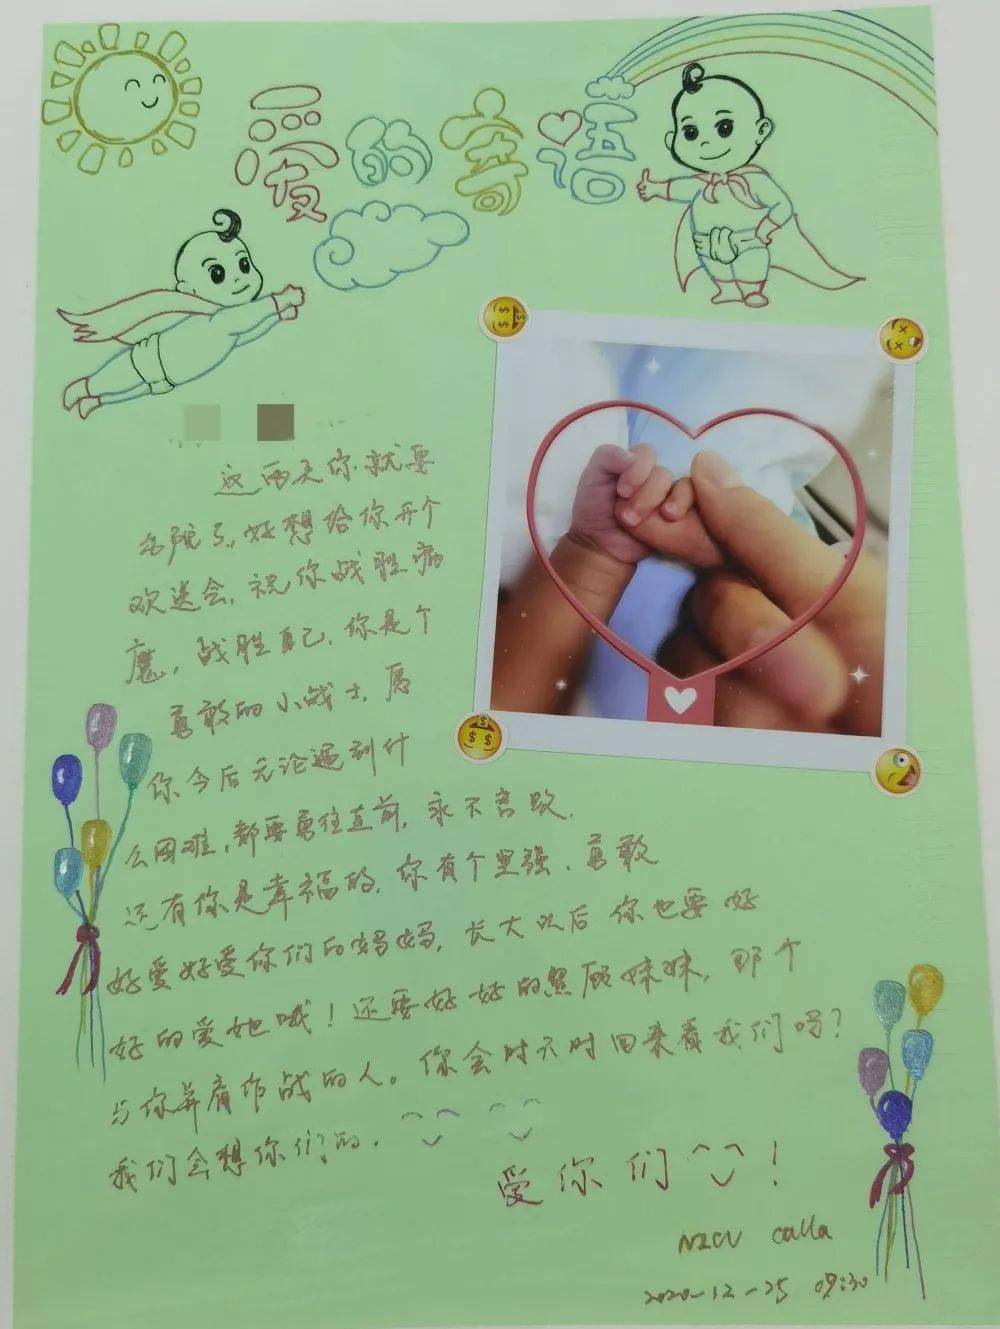 爱的寄语
这两天你就要
出院了,好想给你开个
欢送会,祝你战胜病
魔,战胜自己.你是个
勇敢的小战士,愿
你今后无论遇到什
么困难,都要勇往直前,永不言败.
还有你是幸福的,你有个坚强、勇敢
好爱好爱你们的妈妈,长大以后你也要好
好的爱她哦!还要好好的照顾妹妹,那个
与你并肩作战的人。你会时不时回来看我们吗?
我们会想你们的.
爱你们!
NICU calla
2020-12-25 09:30